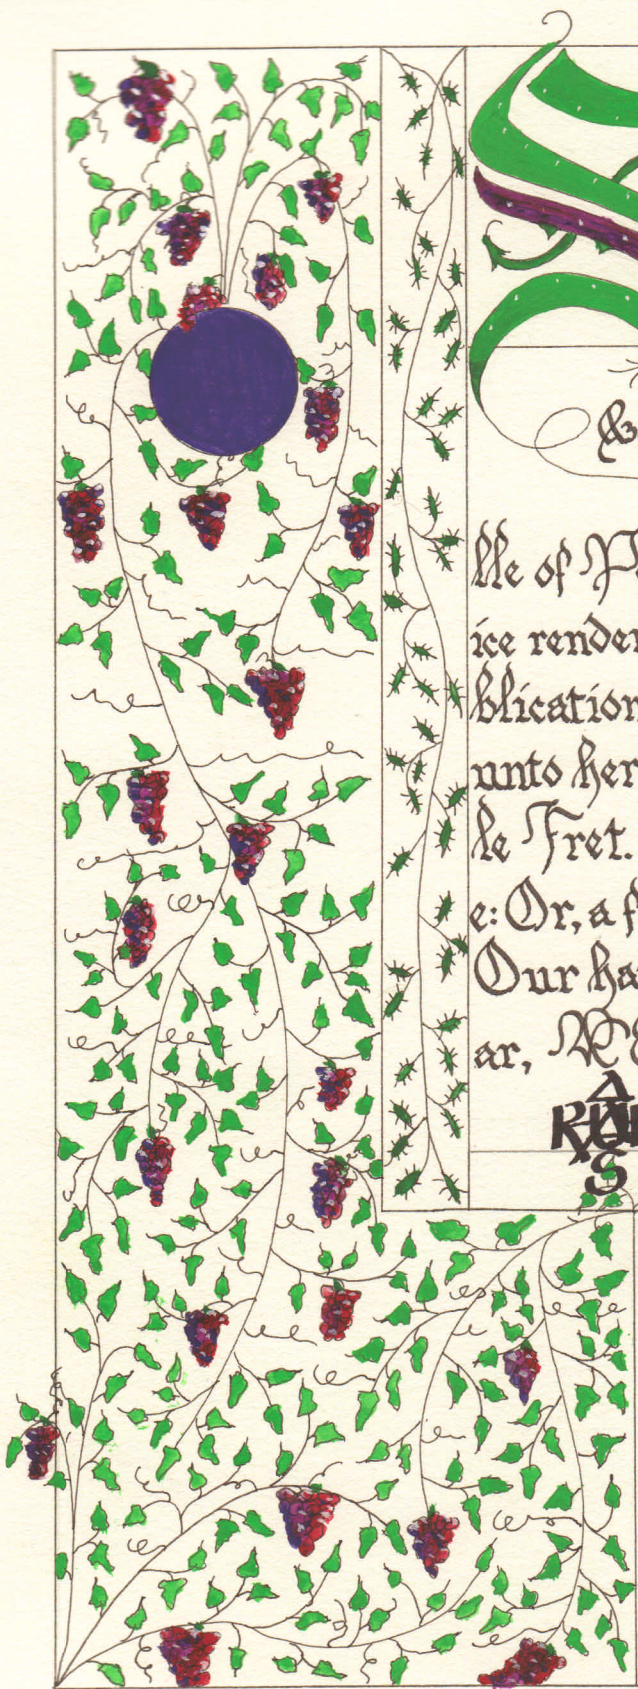 &
lle of P
ice render
blication
unto her
le Fret.
e: Or, a f
Our ha
ar,